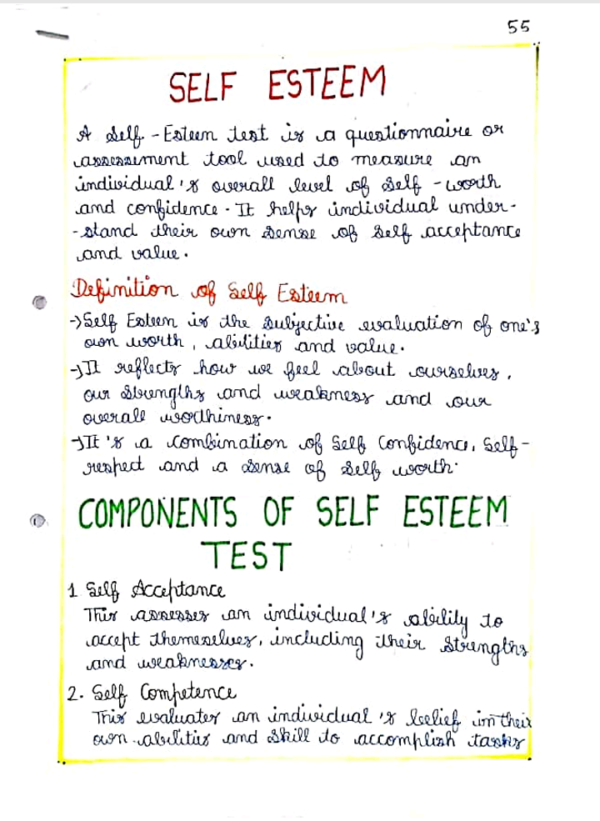 55
SELF ESTEEM
A Self - Esteem test is a questionnaire or
assessment tool used to measure an
individual's overall level of self - worth
and confidence. It helps individual under-
-stand their own sense of self acceptance
and value.
Definition of Self Esteem
→Self Esteem is the subjective evaluation of one's
own worth, abilities and value.
→It reflects how we feel about ourselves,
our strengths and weakness and our
overall worthiness.
→It's a combination of Self Confidence, Self-
respect and a sense of self worth.
COMPONENTS OF SELF ESTEEM
TEST
1 Self Acceptance
This assesses an individual's ability to
accept themselves, including their strengths
and weaknesses.
2. Self Competence
This evaluates an individual's belief in their
own abilities and skill to accomplish tasks